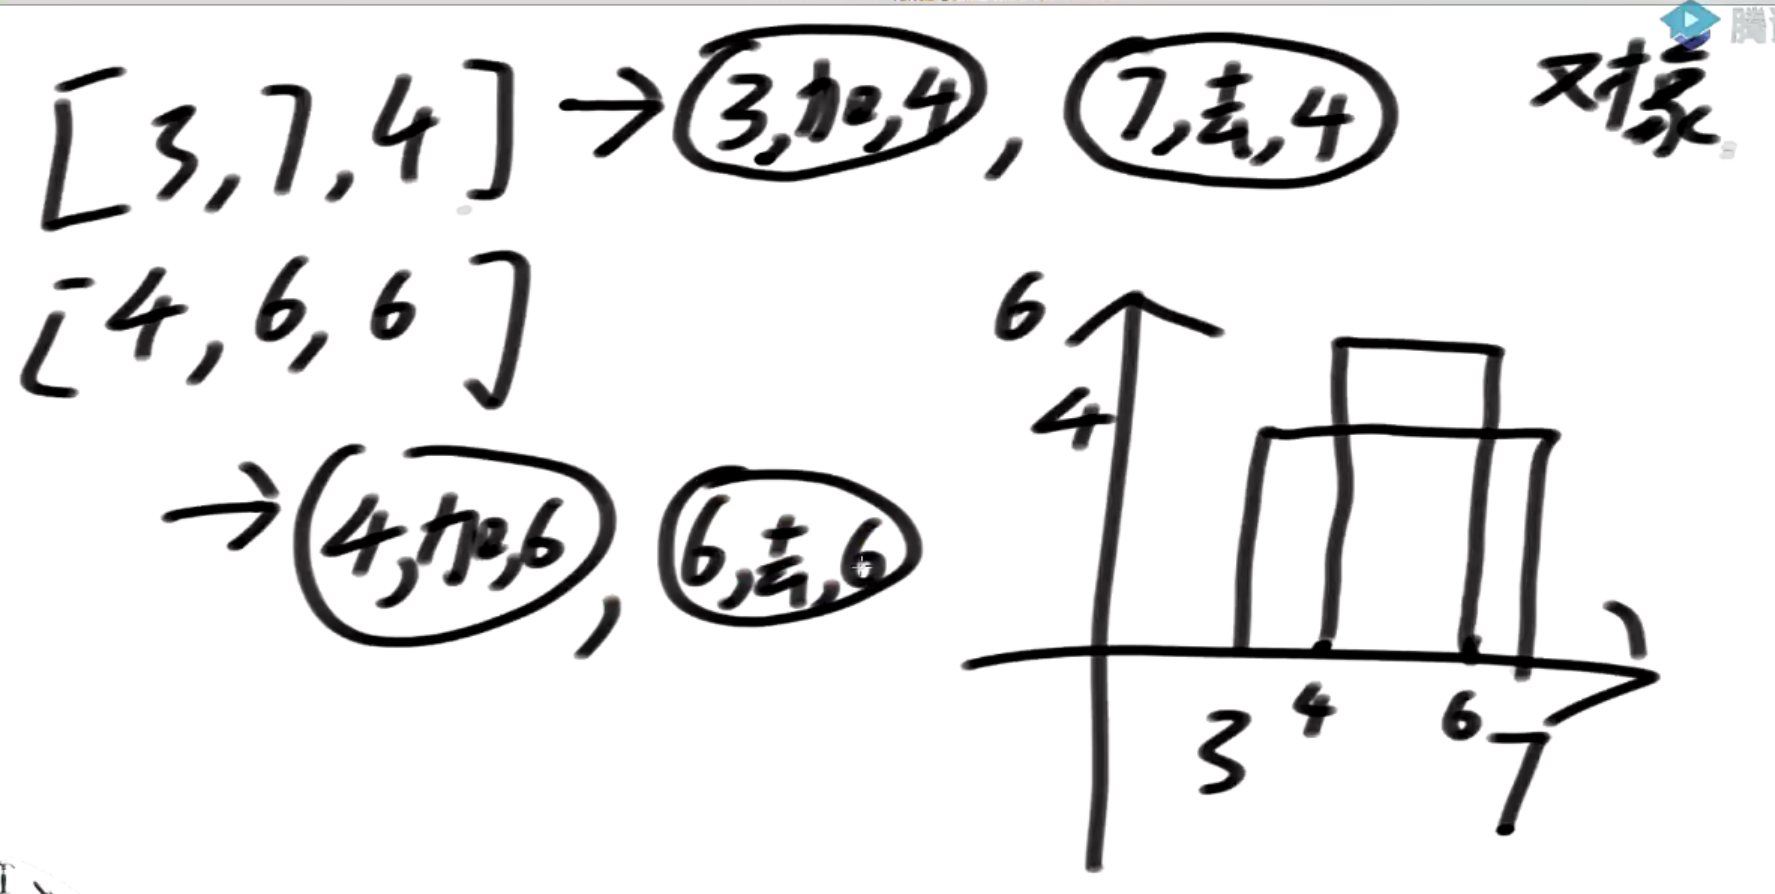 [3,7,4] → 3,加,4 , 7,去,4 对象
[4,6,6]
→ 4,加,6 , 6,去,6
6
4
3 4 6 7